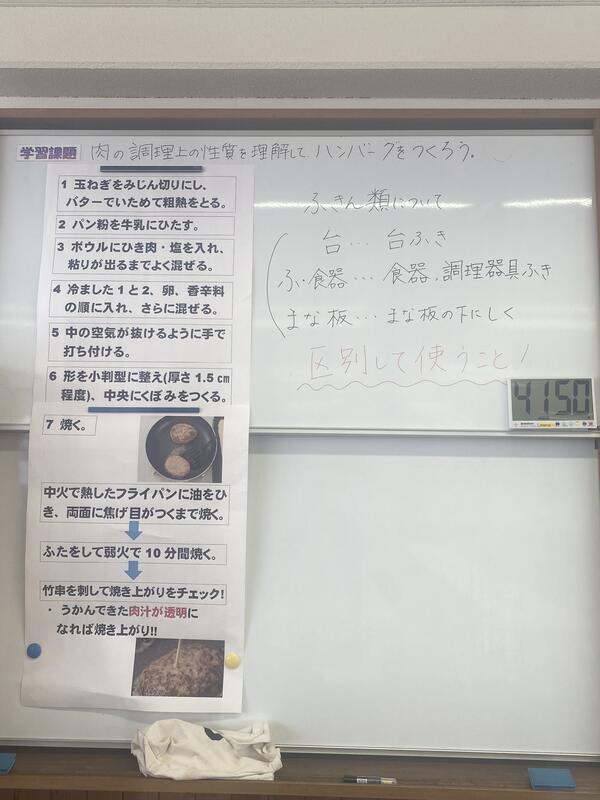 学習課題 肉の調理上の性質を理解して ハンバーグをつくろう。
1 玉ねぎをみじん切りにし、
バターでいためて粗熱をとる。
2 パン粉を牛乳にひたす。
3 ボウルにひき肉・塩を入れ、
粘りが出るまでよく混ぜる。
4 冷ました1と2、卵、香辛料
の順に入れ、さらに混ぜる。
5 中の空気が抜けるように手で
打ち付ける。
6 形を小判型に整え(厚さ1.5㎝
程度)、中央にくぼみをつくる。
7 焼く。
中火で熱したフライパンに油をひ
き、両面に焦げ目がつくまで焼く。
ふたをして弱火で10分間焼く。
竹串を刺して焼き上がりをチェック!
・ うかんできた肉汁が透明に
なれば焼き上がり!!
ふきん類について
台… 台ふき
食器… 食器、調理器具ふき
まな板… まな板の下にしく
区別して使うこと!
41 50